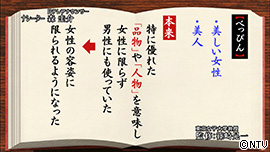 【べっぴん】
・美しい女性
・美人
本来
特に優れた
「品物」や「人物」を意味し
女性に限らず
男性にも使っていた
女性の容姿に
限られるようになった
ナレーター 森 圭介
©NTV